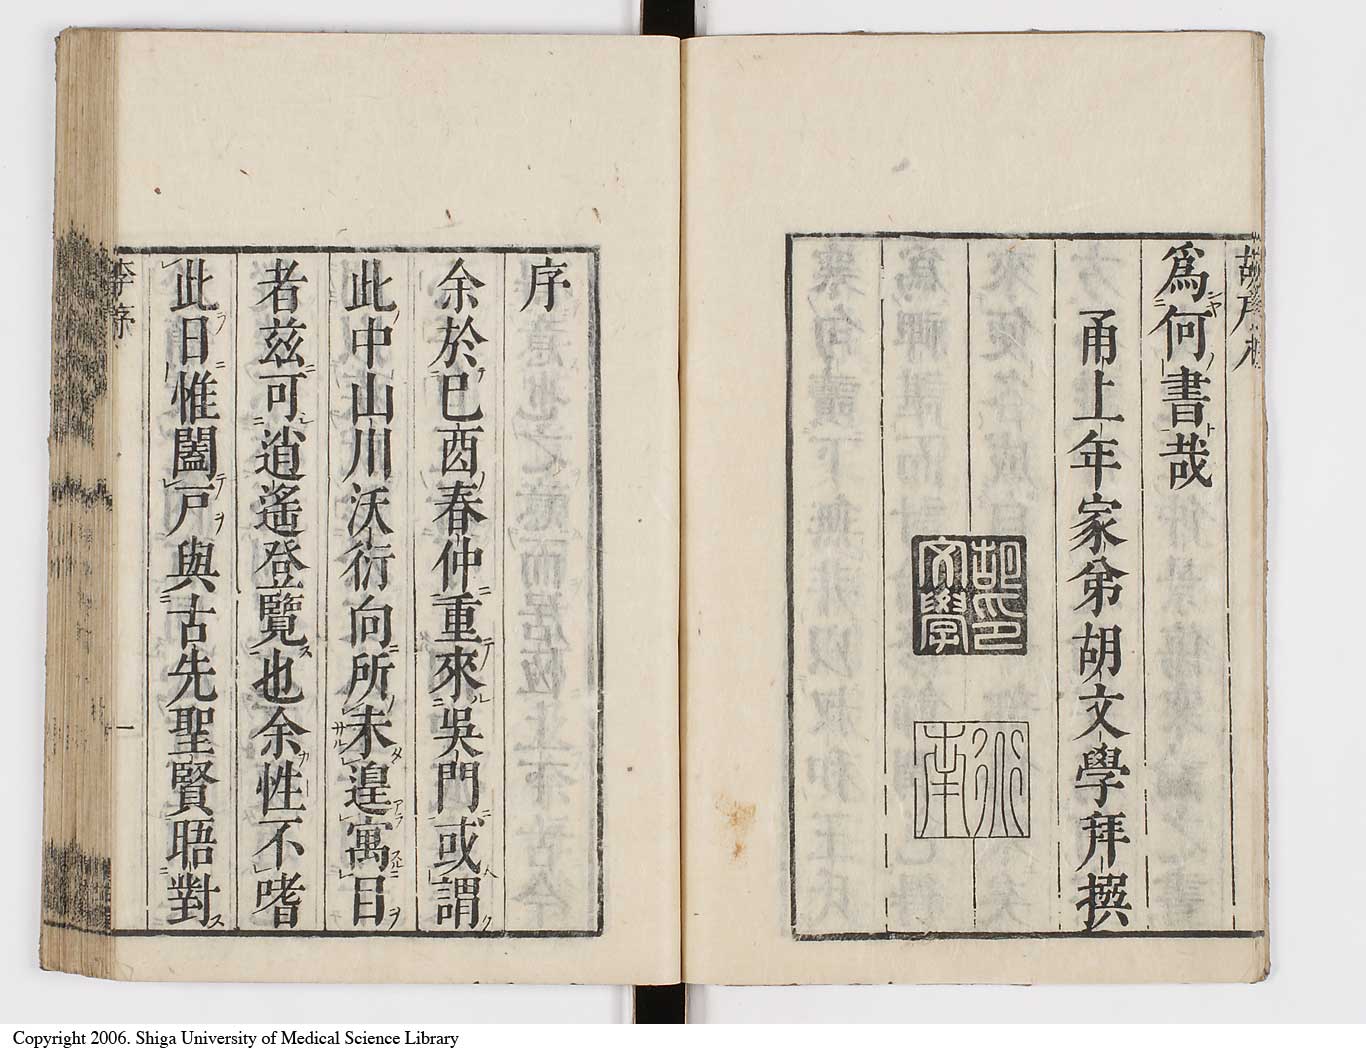 爲何書哉
甬上年家弟胡文學拜撰
胡印文學
序
余於巳酉春仲重來吳門或謂
此中山川沃衍向所未遑寓目
者茲可逍遙登覽也余性不嗜
此日惟闔戸與古先聖賢晤對
李序
一
Copyright 2006. Shiga University of Medical Science Library